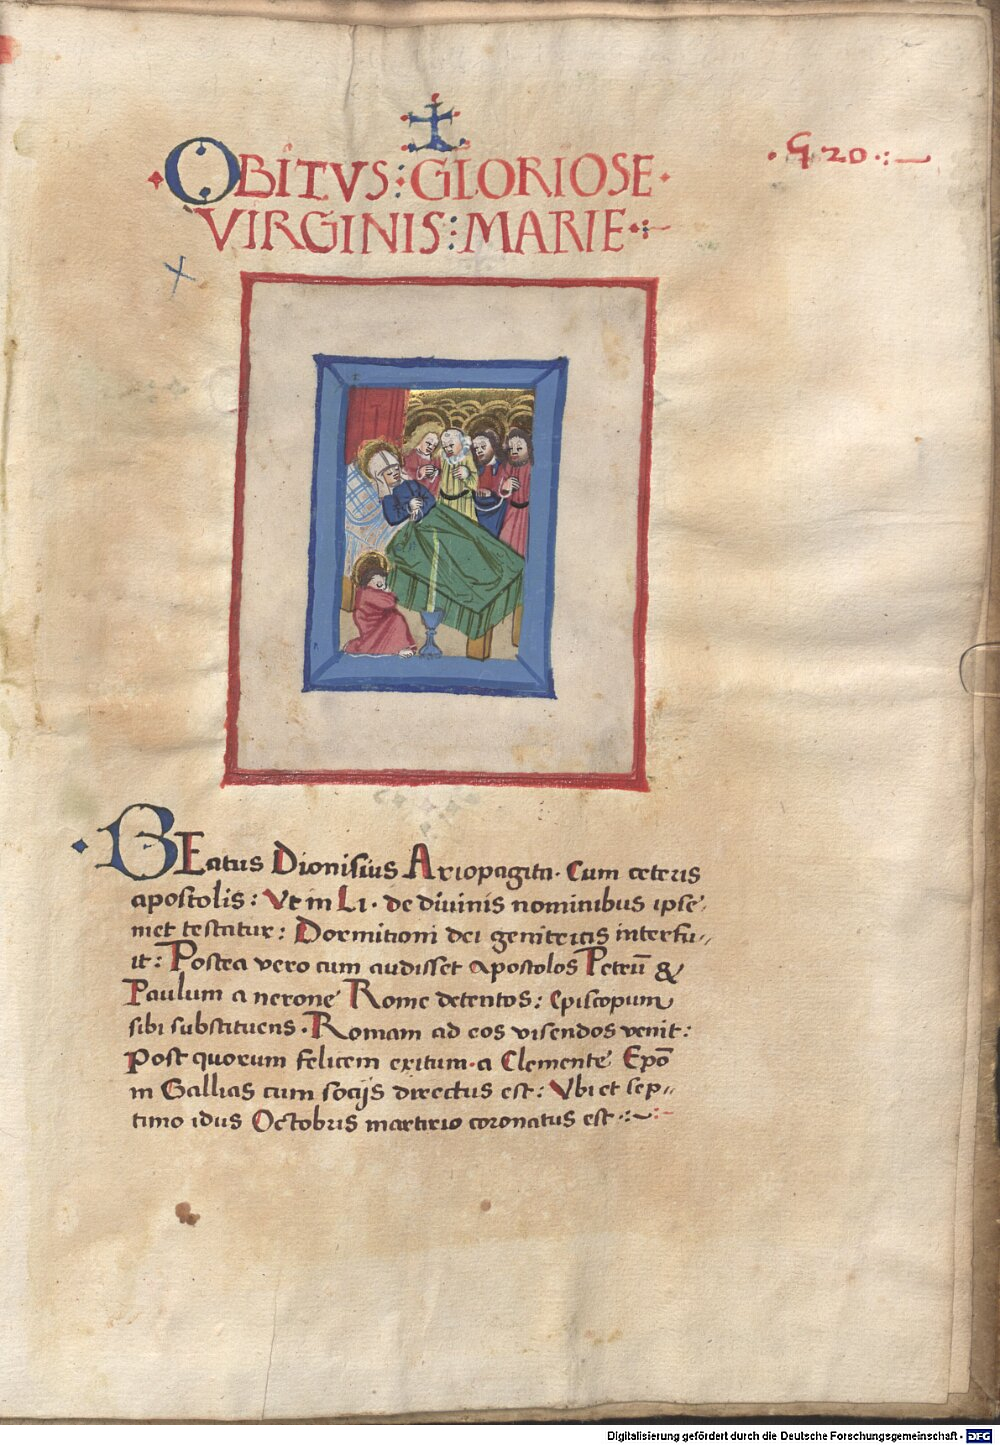 OBITVS : GLORIOSE ·
· G 20 ·:~
VIRGINIS : MARIE ·:~
BEatus Dionisius Ariopagita · Cum ceteris
apostolis : Vt in Li · de diuinis nominibus ipse‚
met testatur : Dormitioni dei genitricis interfu„
it : Postea vero cum audisset apostolos Petrū &
Paulum a nerone Rome detentos : Episcopum
sibi substituens · Romam ad eos visendos venit :
Post quorum felicem exitum · a Clemente Epō
in Gallias cum socijs directus est : Vbi et sep„
timo idus Octobris martirio coronatus est ·:~:~
Digitalisierung gefördert durch die Deutsche Forschungsgemeinschaft - DFG